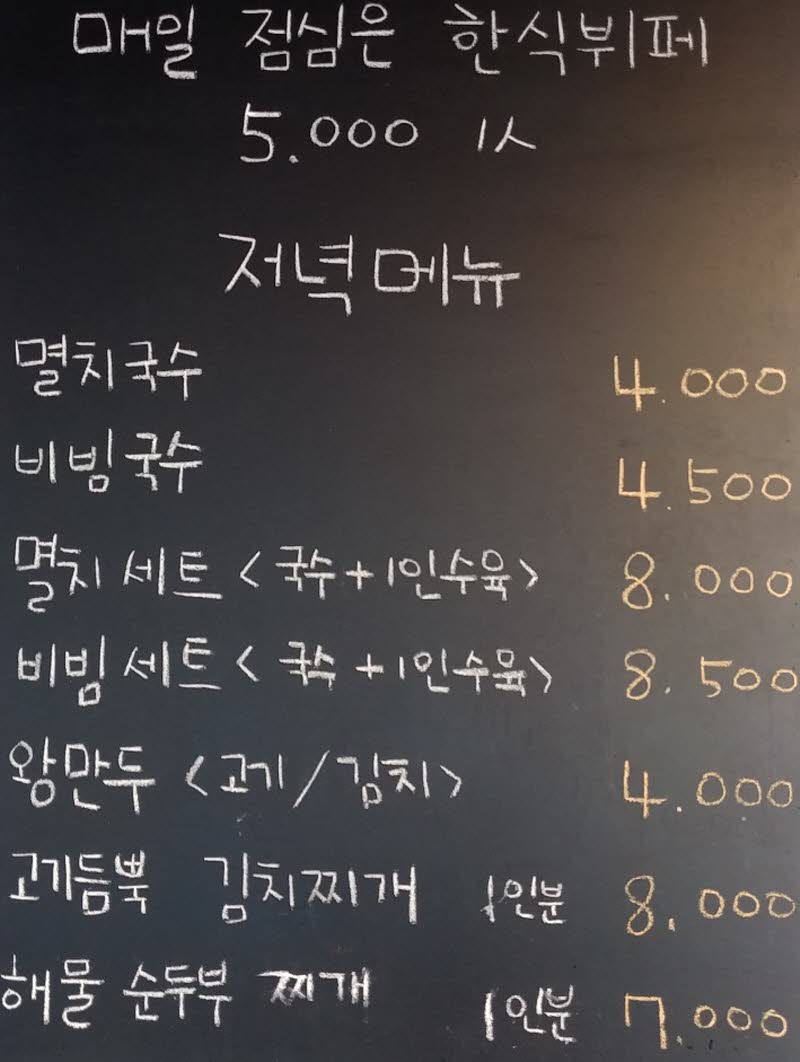 매일 점심은 한식뷔페
5.000 1人
저녁메뉴
멸치국수 4.000
비빔국수 4.500
멸치세트 <국수+1인수육> 8.000
비빔세트 <국수+1인수육> 8.500
왕만두 <고기/김치> 4.000
고기듬뿍 김치찌개 1인분 8.000
해물 순두부 찌개 1인분 7.000